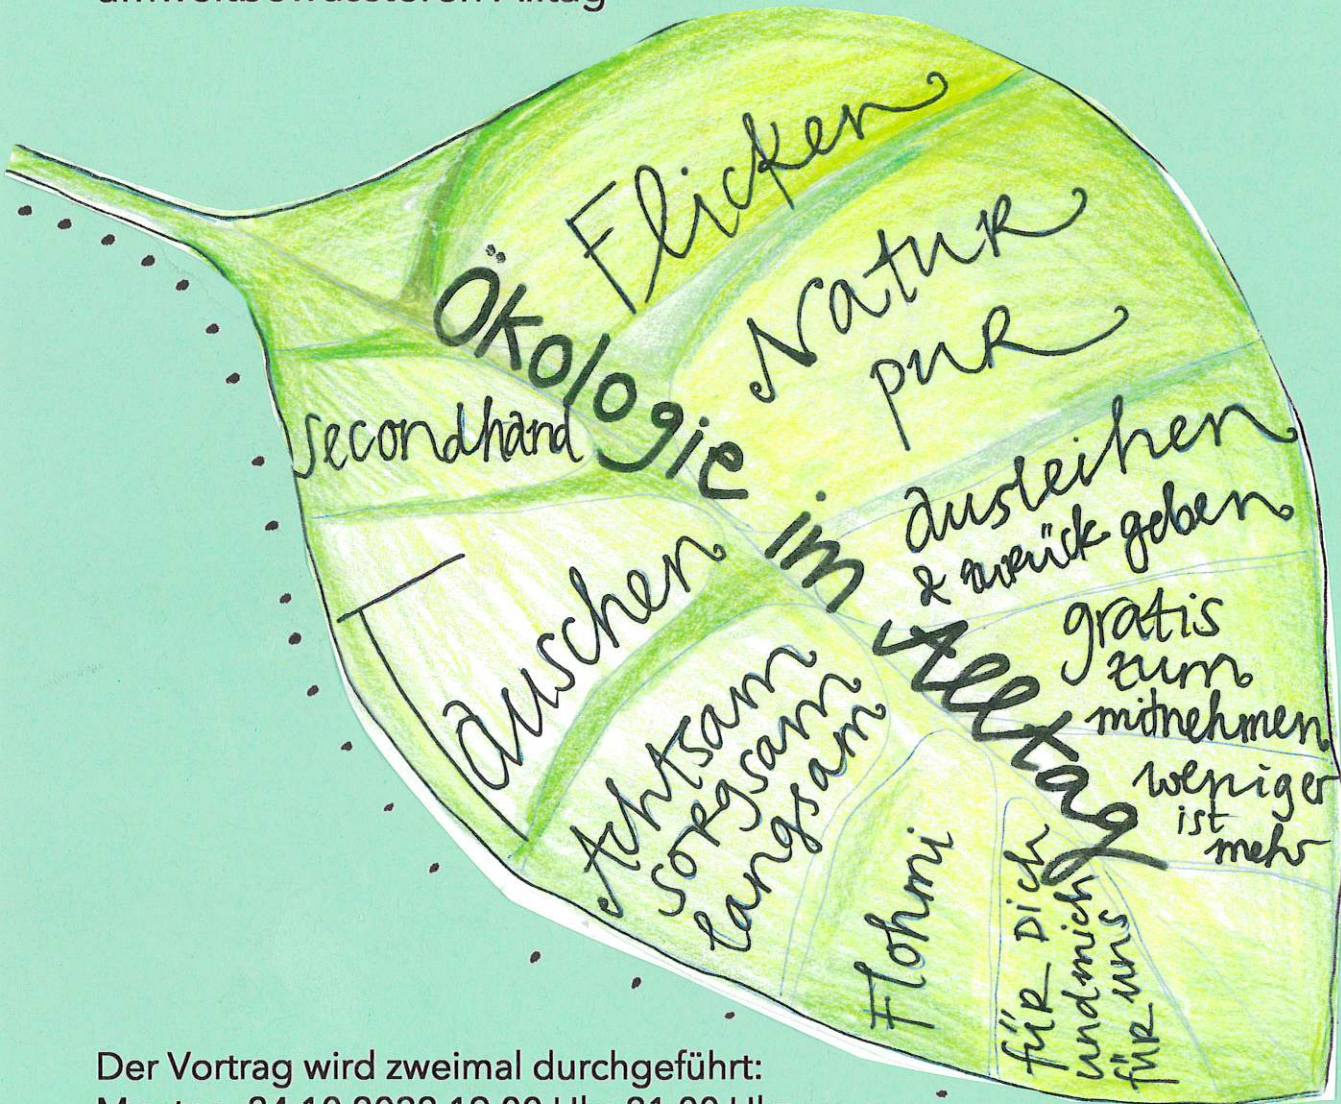 umweltbewussteren Alltag
Flicken
Natur
pur
Ökologie im Alltag
secondhand
ausleihen
& zurück geben
Tauschen
gratis
zum
mitnehmen
weniger
ist
mehr
Achtsam
sorgsam
langsam
Flohmi
für Dich
und mich
für uns
Der Vortrag wird zweimal durchgeführt: